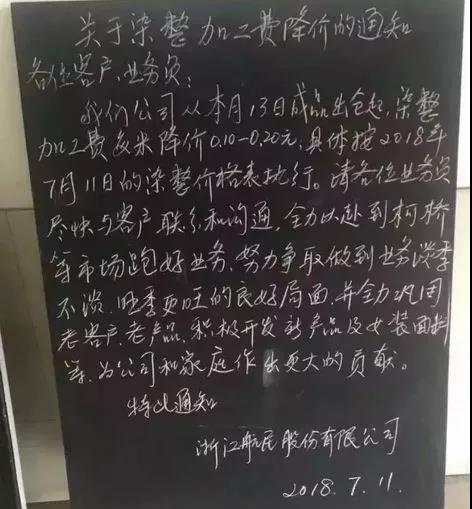 关于染整加工费降价的通知
各位客户、业务员：
我们公司从本月13日成品出仓起，染整
加工费每米降价0.10-0.20元，具体按2018年
7月11日的染整价格表执行。请各位业务员
尽快与客户联系和沟通，全力以赴到柯桥
等市场跑好业务，努力争取做到业务淡季
不淡，旺季更旺的良好局面，并全力巩固
老客户、老产品，积极开发新产品及女装面料
等，为公司和家庭作出更大的贡献。
特此通知
浙江航民股份有限公司
2018.7.11.